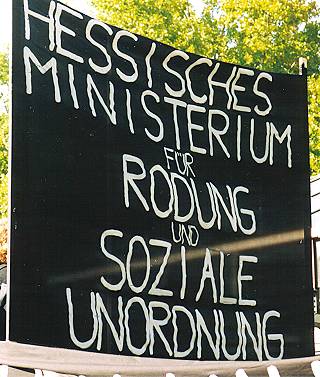 HESSISCHES
MINISTERIUM
FÜR
RODUNG
UND
SOZIALE
UNORDNUNG